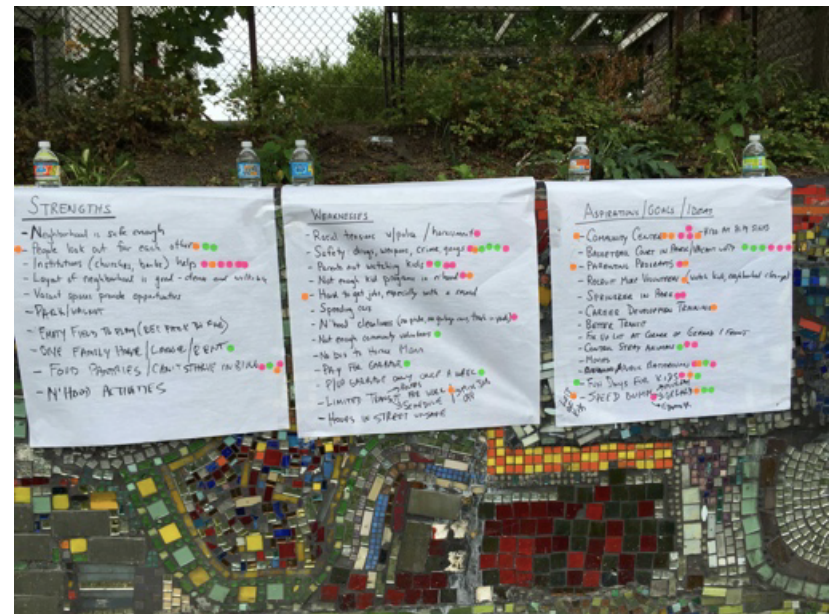 STRENGTHS
- Neighborhood is safe enough
- People look out for each other
- Institutions (churches, banks) helps
- Layout of neighborhood is good - clean and
- Vacant spaces promote opportunities
- PARK/VACANT
- EMPTY FIELD TO PLAY
- ONE FAMILY HOME / LARGE / RENT
- FOOD PANTRIES / CAN'T STARVE IN
- N'HOOD ACTIVITIES
WEAKNESSES
- Racial tensions w/police / harassment
- Safety: drugs, weapons, crime, gangs
- Parents not watching kids
- Not enough kid programs in n'hood
- Hard to get jobs, especially with a record
- Speeding cars
- N'hood cleanliness
- Not enough community volunteers
- No Dr's to
- PAY FOR GARBAGE
- P/UP GARBAGE ONLY ONCE A WEEK
- LIMITED TRANSIT FOR WORK
SCHEDULE
- HOUSES IN STREET UNSAFE
ASPIRATIONS / GOALS / IDEAS
- COMMUNITY CENTER
- BASKETBALL COURT IN PARK / VACANT LOTS
- PARENTING PROGRAMS
- RECRUIT MORE VOLUNTEERS (watch kids, neighborhood cleanups)
- SPRINKLER IN PARK
- CAREER DEVELOPMENT TRAINING
- BETTER TRANSIT
- FIX UP LOT AT CORNER OF
- CONTROL STRAY ANIMALS
- MOVIES
PUBLIC BATHROOMS
- FUN DAYS FOR KIDS
- SPEED BUMPS